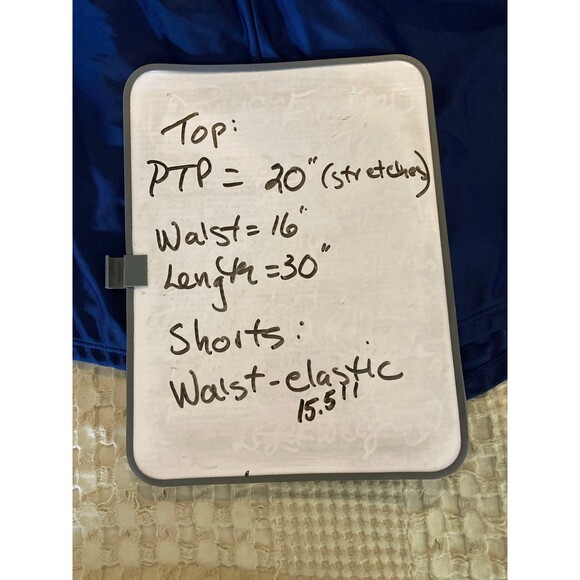 Top:
PTP = 20" (stretches)
Waist = 16"
Length = 30"
Shorts:
Waist - elastic
15.5"